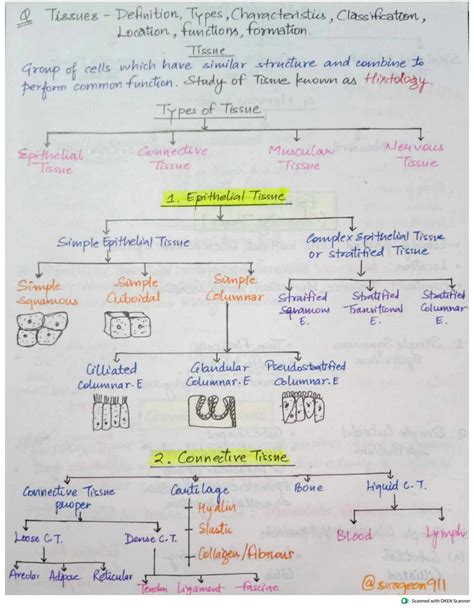 Q Tissues - Definition, Types, Characteristics, Classification,
Location, functions, formation.
Tissue
Group of cells which have similar structure and combine to
perform common function. Study of Tissue known as Histology.
Types of Tissue
Epithelial Tissue
Connective Tissue
Muscular Tissue
Nervous Tissue
1. Epithelial Tissue
Simple Epithelial Tissue
Complex Epithelial Tissue
or stratified Tissue
Simple Squamous
Simple Cuboidal
Simple Columnar
Straified Squamous E.
Stratified Transitional E.
Stratified Columnar E.
Cilliated Columnar.E
Glandular Columnar.E
Pseudostratified Columnar.E
2. Connective Tissue
Connective Tissue proper
Cartilage
Bone
Liquid C.T.
- Hyalin
- Elastic
- Collagen/Fibrous
Loose C.T.
Dense C.T.
Blood
Lymph
Areolar Adipose Reticular
Tendon Ligament - fascine
@surgeon911
Scanned with OKEN Scanner